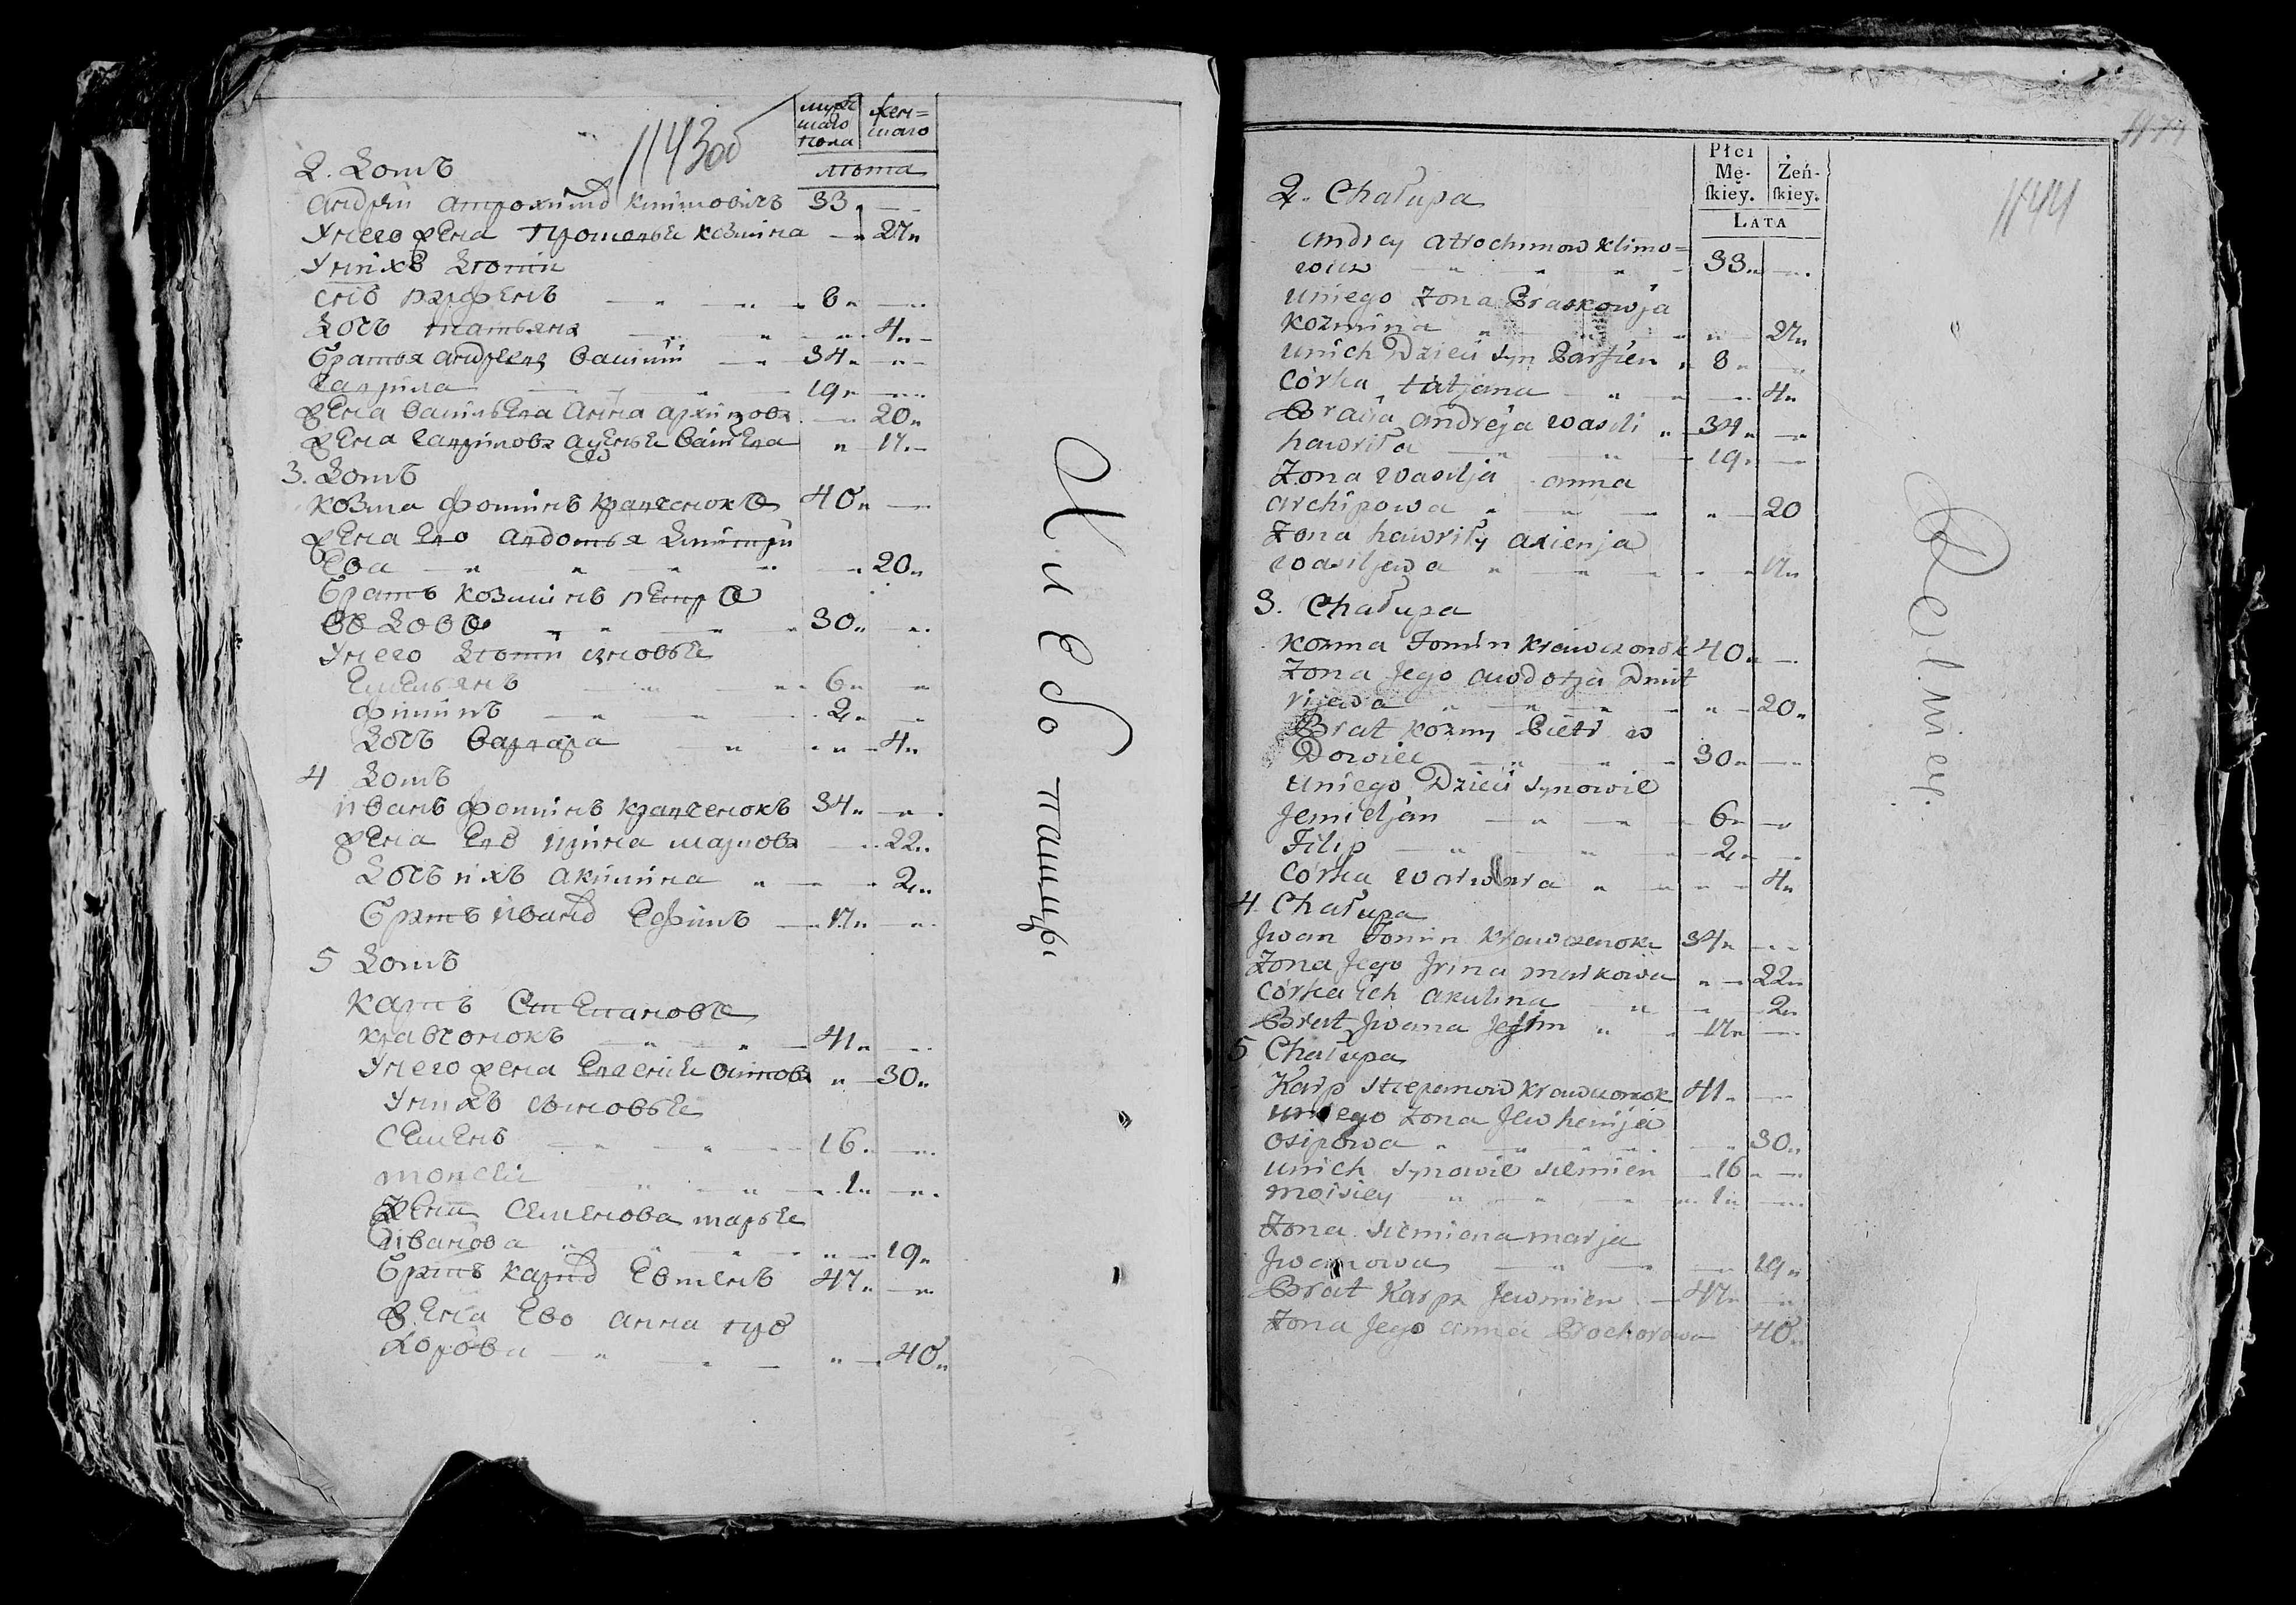 1143об
мужескаго пола
женскаго
лѣта
2. Домъ
андрѣй атрохимов климовичъ 33
У него жена просковья козмина 27
У нихъ дѣти
сынъ парфенъ 8
Дочь татьяна 4
братья андреея василий 34
гаврила 19
жена васильева анна архипова 20
жена гаврилова аценья васильева 17
3. Домъ
козма фоминъ кравченокъ 40
жена ево авдотья дмитри
ева 20
братъ козминъ петръ
вдовъ 30
У него дѣти сыновья
емельянъ 6
филипъ 2
Дочь варвара 4
4 Домъ
иванъ фоминъ кравченокъ 34
жена ево ирина маркова 22
Дочь ихъ акилина 2
братъ ивановъ ефимъ 17
5 Домъ
карпъ степановъ
кравчонокъ 41
У него жена евгенья осипова 30
У нихъ сыновья
семенъ 16
моисей 1
жена семенова марья
иванова 19
братъ карповъ евменъ 47
жена ево анна про
хорова 40
Хлебопашцы
1144
Płci Mę-ſkiey.
Żeń-ſkiey.
LATA
2. Chałupa
Andrey atrochimow klimo=
wicz 33
uniego żona Praskowja
kozmina 27
unich Dzieci syn Parfien 8
Córka tatjana 4
Bracia andreja wasili 34
hawriła 19
Żona wasilja anna
archipowa 20
Żona hawriły axienja
wasiljewa 17
3. Chałupa
kozma Fomin krawczonok 40
Żona Jego awdotja Dmit
rijewa 20
Brat kozmy Pietr w
Dowiec 30
uniego Dzieci synowie
Jemieljan 6
Filip 2
Córka warwara 4
4 Chałupa
Jwan Fomin krawczenok 34
Żona Jego Jrina markowa 22
Córka ich akulina 2
Brat Jwana Jefim 17
5 Chałupa
Karp stiepanow krawczonok 41
uniego żona Jewhenija
osipowa 30
unich synowie siemien 16
moisiey 1
Żona siemiena marja
Jwanowa 19
Brat Karpa Jewmien 47
Żona Jego anna Prochorowa 40
Rolnicy.